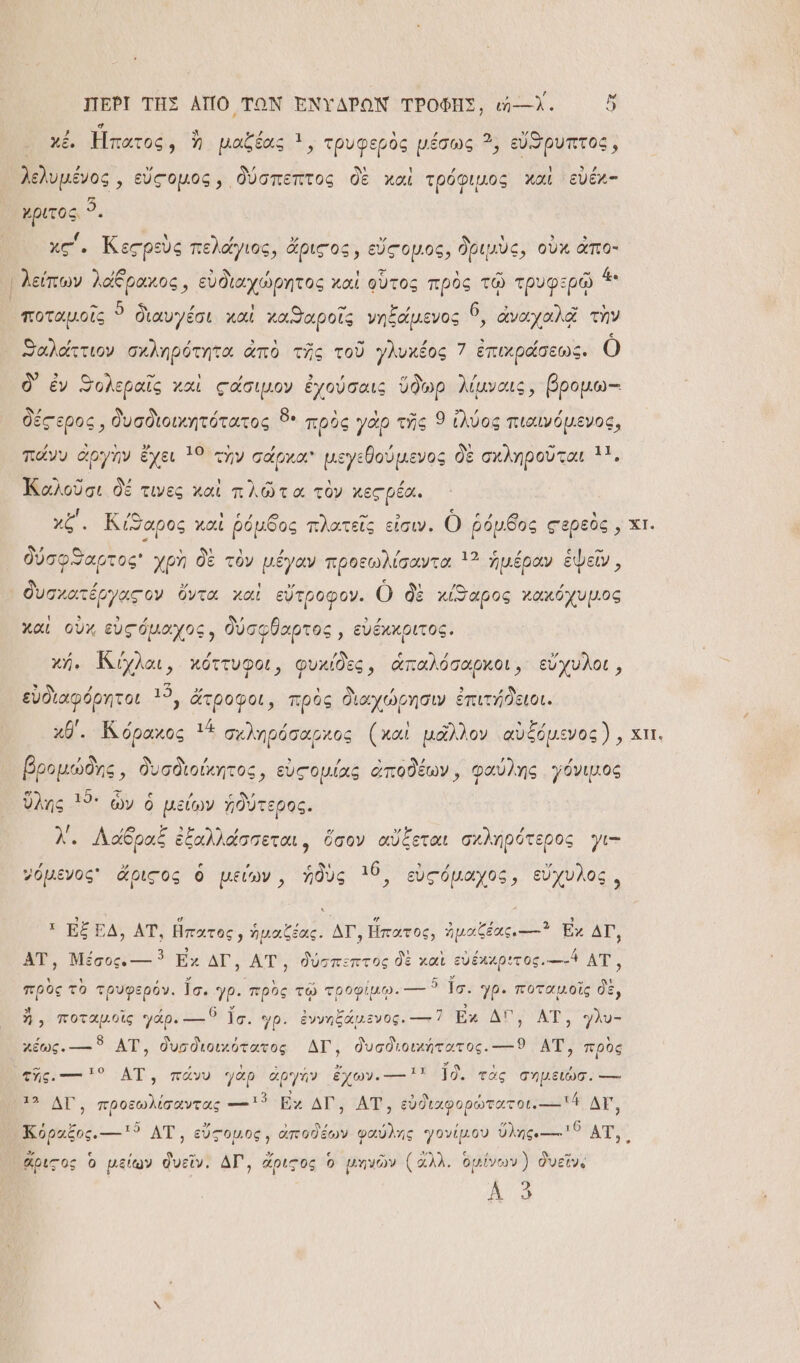 ΠΕΡΙ ΤΗΣ ΑΠΟ ΤΩΝ ΕΝΥΔΡΩΝ ΤΡΟΦΗΣ, ιή—λ. 5
κέ. Ηπατος, ἢ μαζέας ¹, τρυφερὸς μέσως ², εὔθρυπτος,
λελυμένος, εὔϛομος, δύσπεπτος δὲ καὶ τρόφιμος καὶ εὐέκ-
κριτος ³.
κϛʹ. Κεϛρεὺς πελάγιος, ἄριϛος, εὔϛομος, δριμὺς, οὐκ ἀπο-
λείπων λάβρακος, εὐδιαχώρητος καὶ οὗτος πρὸς τῷ τρυφερῷ ⁴·
ποταμοῖς ⁵ διαυγέσι καὶ καθαροῖς νηξάμενος ⁶, ἀναχαλᾷ τὴν
θαλάττιον σκληρότητα ἀπὸ τῆς τοῦ γλυκέος ⁷ ἐπικράσεως. Ὁ
δ' ἐν θολεραῖς καὶ ϛάσιμον ἐχούσαις ὕδωρ λίμναις, βρομω-
δέϛερος, δυσδιοικητότατος ⁸· πρὸς γὰρ τῆς ⁹ ἰλύος πιαινόμενος,
πάνυ ἀργὴν ἔχει ¹⁰ τὴν σάρκα· μεγεθούμενος δὲ σκληροῦται ¹¹.
Καλοῦσι δέ τινες καὶ πλῶτα τὸν κεϛρέα.
κζʹ. Κίθαρος καὶ ῥόμβος πλατεῖς εἰσιν. Ὁ ῥόμβος ϛερεὸς, XI.
δύσφθαρτος· χρὴ δὲ τὸν μέγαν προεωλίσαντα ¹² ἡμέραν ἑψεῖν,
δυσκατέργαϛον ὄντα καὶ εὔτροφον. Ὁ δὲ κίθαρος κακόχυμος
καὶ οὐκ εὐϛόμαχος, δύσφθαρτος, εὐέκκριτος.
κή. Κίχλαι, κόττυφοι, φυκίδες, ἁπαλόσαρκοι, εὔχυλοι,
εὐδιαφόρητοι ¹³, ἄτροφοι, πρὸς διαχώρησιν ἐπιτήδειοι.
κθʹ. Κόρακος ¹⁴ σκληρόσαρκος (καὶ μᾶλλον αὐξόμενος), XII.
βρομώδης, δυσδιοίκητος, εὐϛομίας ἀποδέων, φαύλης γόνιμος
ὕλης ¹⁵· ὧν ὁ μείων ἡδύτερος.
λʹ. Λάβραξ ἐξαλλάσσεται, ὅσον αὔξεται σκληρότερος γι-
νόμενος· ἄριϛος ὁ μείων, ἡδὺς ¹⁶, εὐϛόμαχος, εὔχυλος,
¹ Εξ ΕΔ, ΑΤ, Ηπατος, ἡμαζέας. ΔΓ, Ηπατος, ἠμαζέας.—² Εκ ΔΓ,
ΑΤ, Μέσος.—³ Εκ ΔΓ, ΑΤ, δύσπεπτος δὲ καὶ εὐέκκριτος.—⁴ ΑΤ,
πρὸς τὸ τρυφερόν. Ισ. γρ. πρὸς τῷ τροφίμῳ.—⁵ Ισ. γρ. ποταμοῖς δὲ,
ἢ, ποταμοῖς γάρ.—⁶ Ισ. γρ. ἐννηξάμενος.—⁷ Εκ ΔΓ, ΑΤ, γλυ-
κέως.—⁸ ΑΤ, δυσδιοικότατος ΔΓ, δυσδιοικήτατος.—⁹ ΑΤ, πρὸς
τῆς.—¹⁰ ΑΤ, πάνυ γὰρ ἀργὴν ἔχων.—¹¹ Ιδ. τὰς σημειώσ.—
¹² ΔΓ, προεωλίσαντας—¹³ Εκ ΔΓ, ΑΤ, εὐδιαφορώτατοι.—¹⁴ ΔΓ,
Κόραξος.—¹⁵ ΑΤ, εὔϛομος, ἀποδέων φαύλης γονίμου ὕλης.—¹⁶ ΑΤ,
ἄριϛος ὁ μείων δυεῖν. ΔΓ, ἄριϛος ὁ μηνῶν (ἀλλ. ὁμίνων) δυεῖν.
Α 3